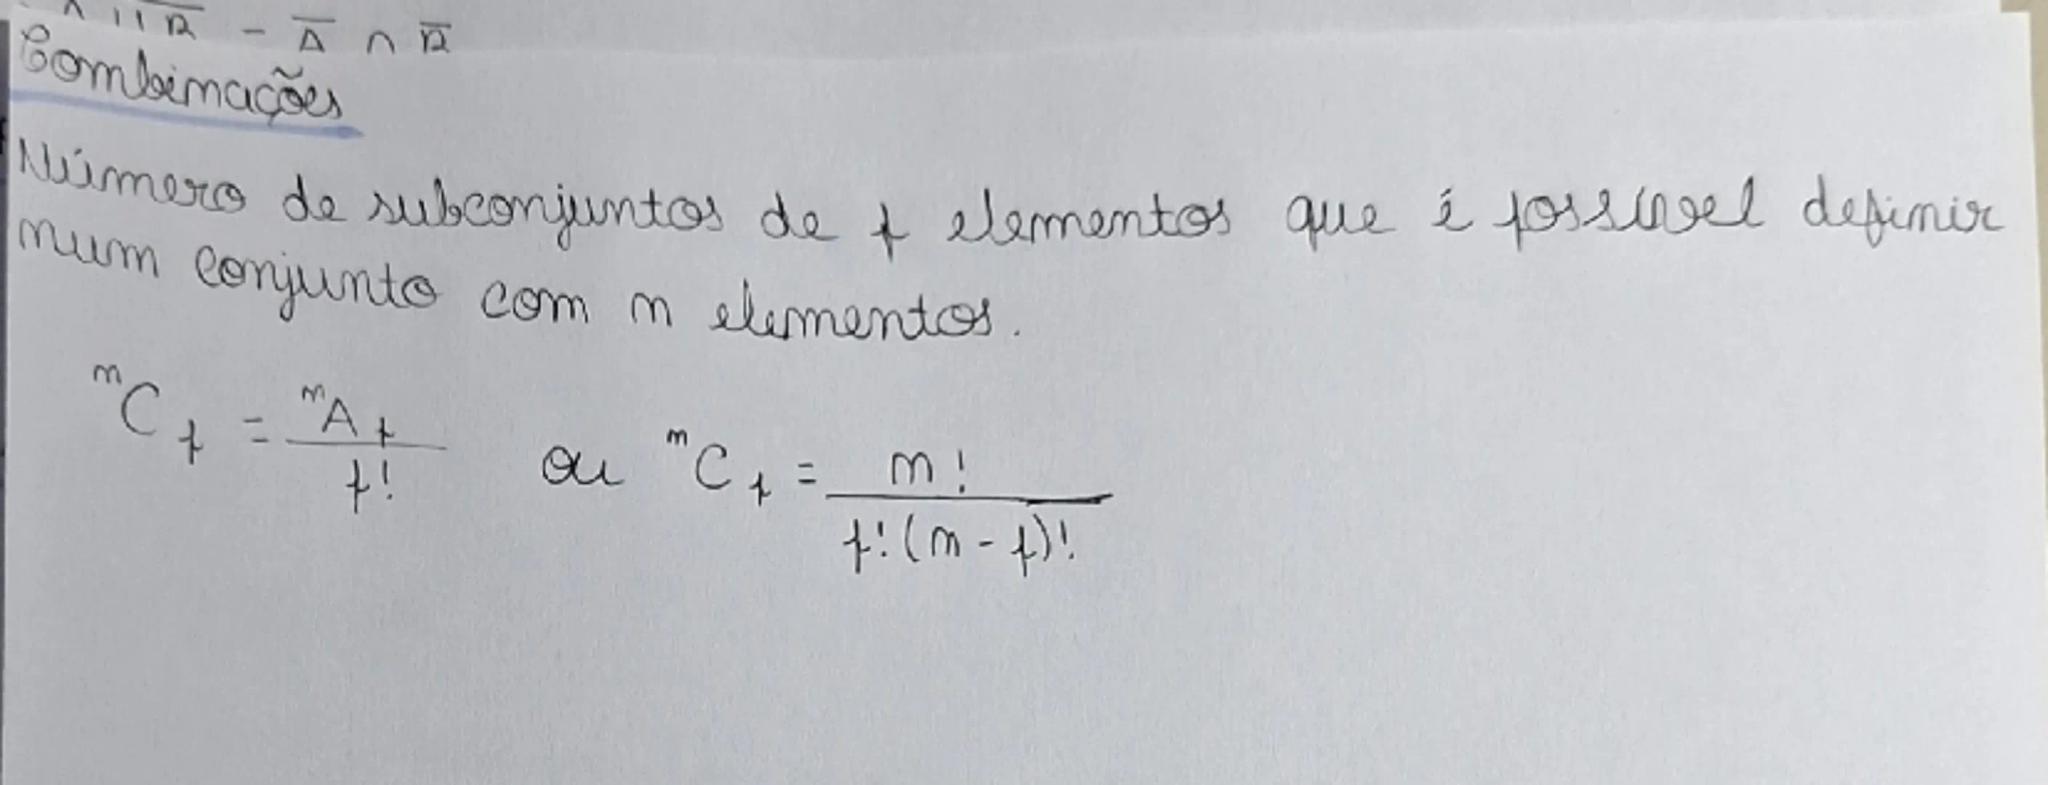 Combinações
Número de subconjuntos de p elementos que é possível definir
num conjunto com n elementos.
ⁿCₚ = ⁿAₚ / p! ou ⁿCₚ = n! / p!(n - p)!